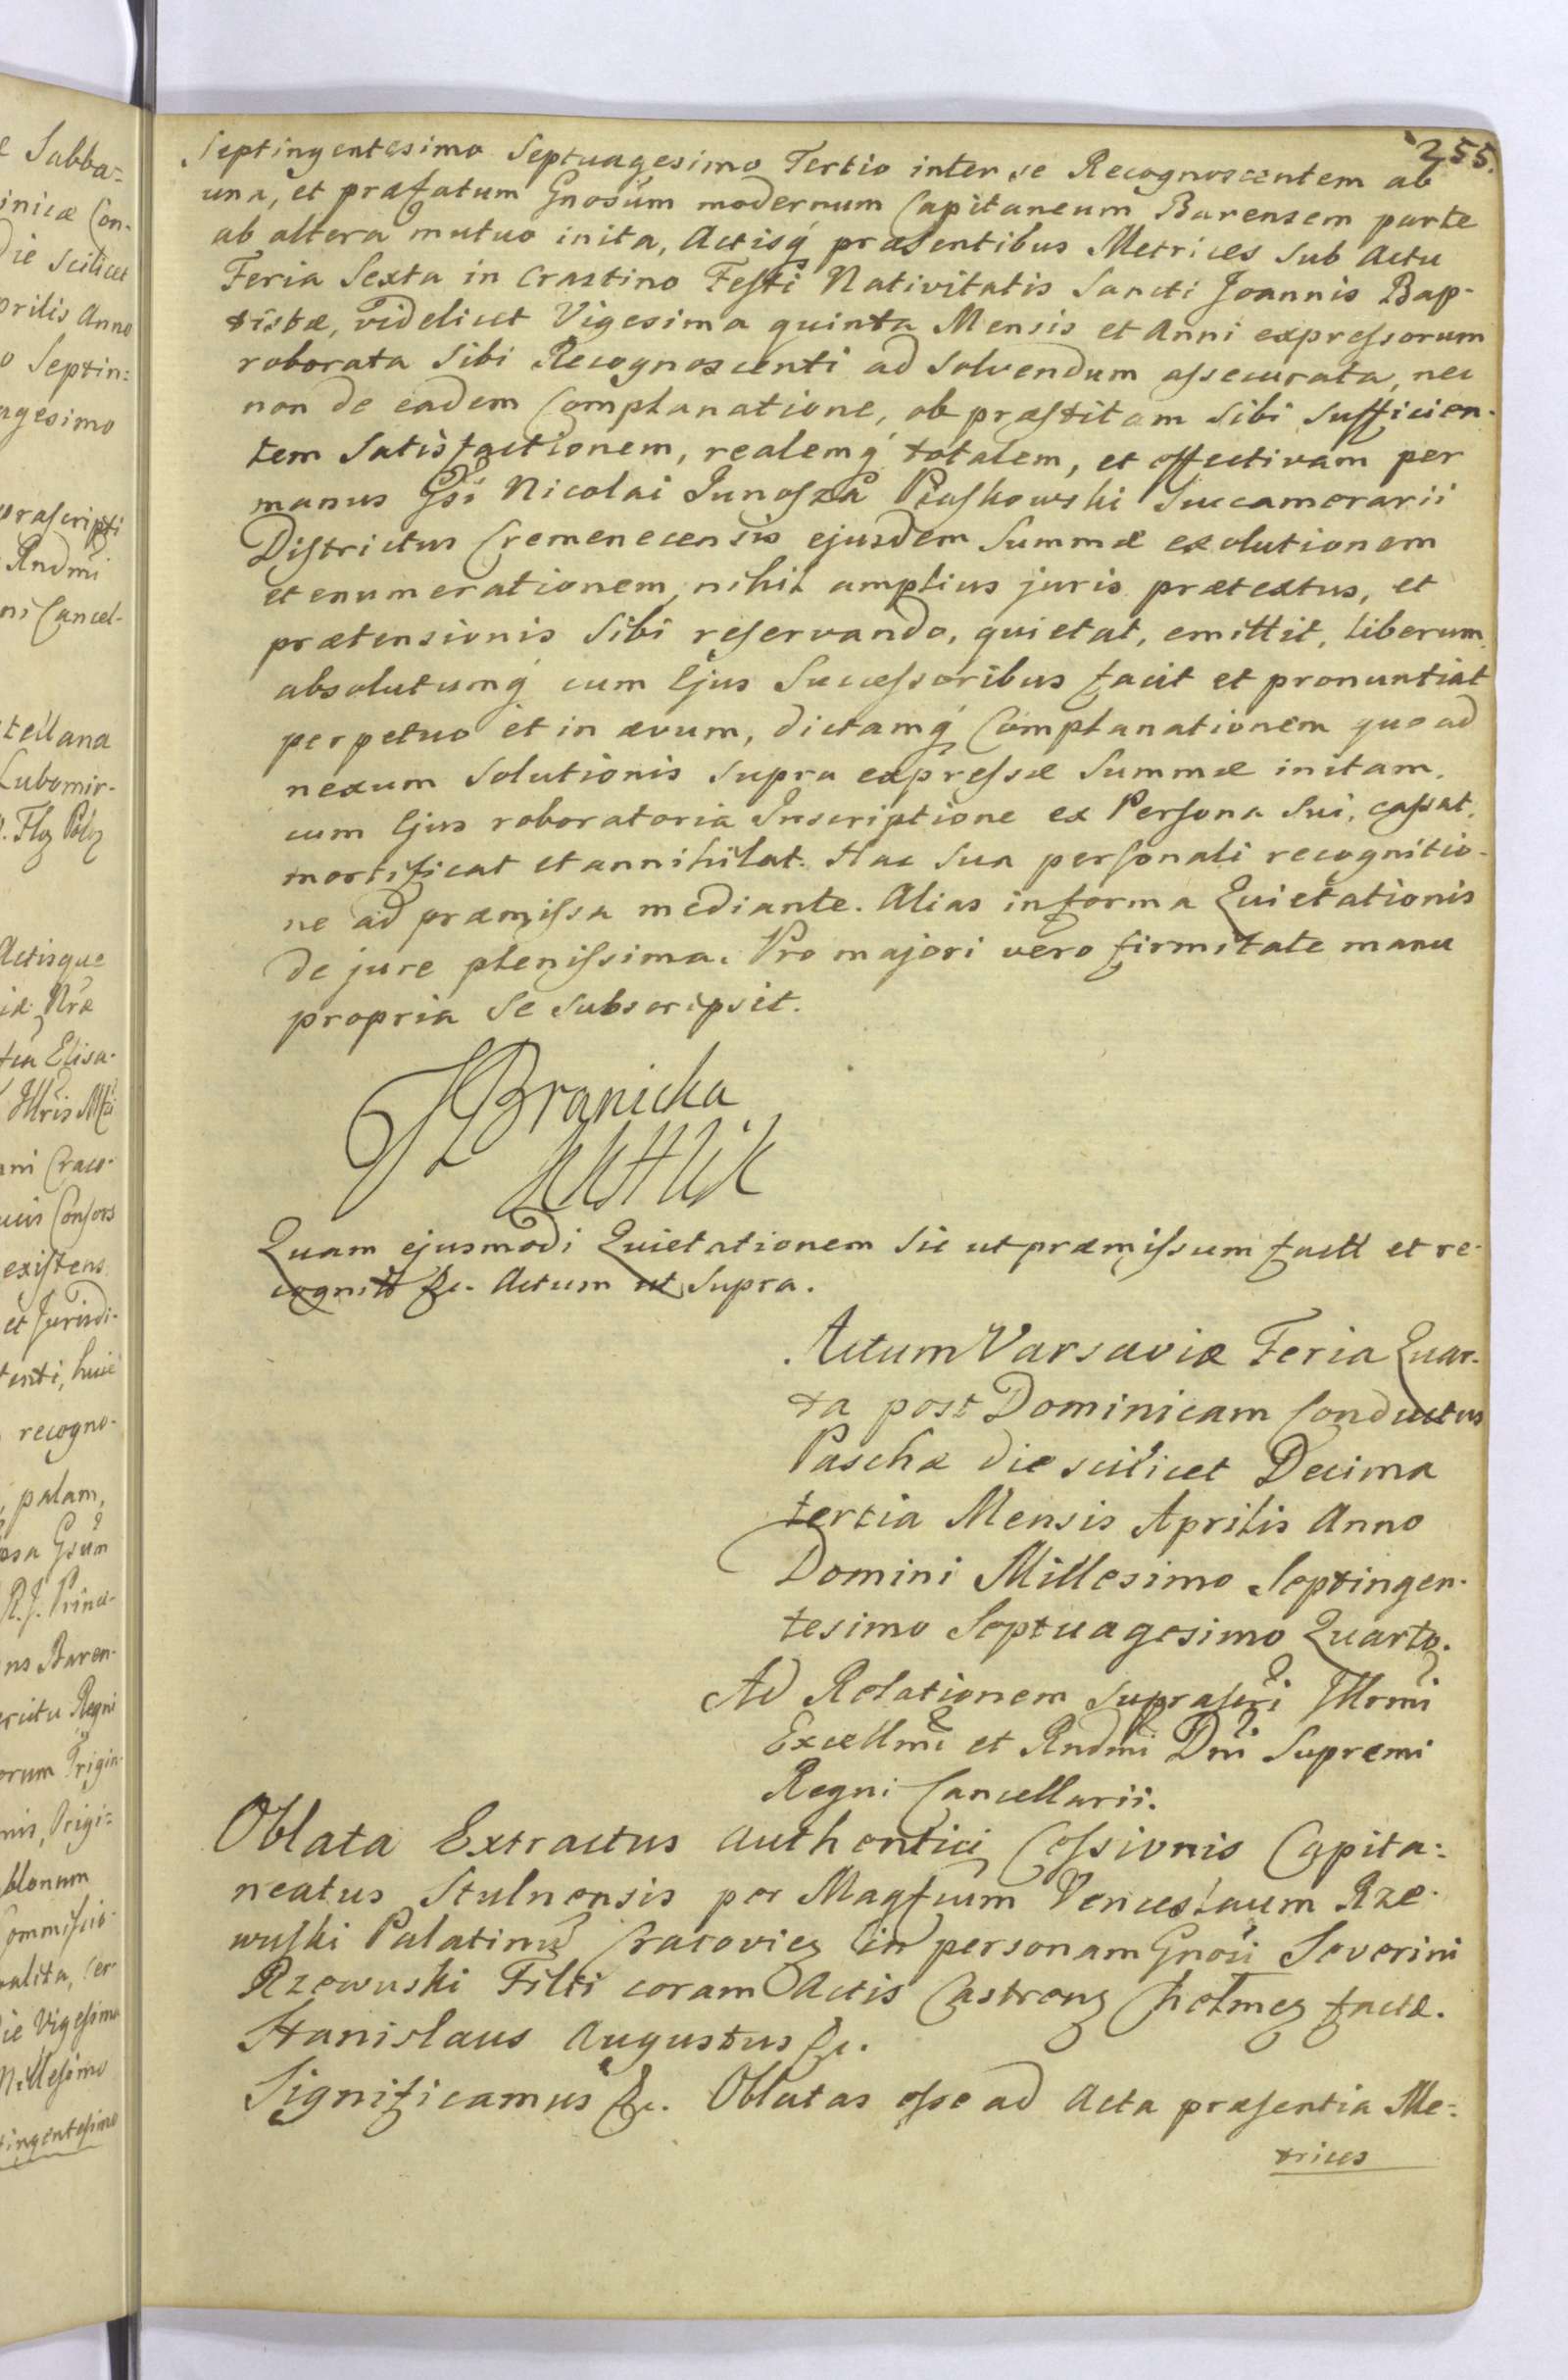 255.
Septingentesimo Septuagesimo Tertio inter se Recognoscentem ab
una, et præfatum Gnosum modernum Capitaneum Barensem parte
ab altera mutuo inita, Actisq́ præsentibus Metrices sub Actu
Feria Sexta in Crastino Festi Nativitatis Sancti Joannis Bap-
tistæ, videlicet Vigesima quinta Mensis et Anni expressorum
roborata Sibi Recognoscenti ad Solvendum assecurata, nec
non de eadem Complanatione, ob præstitam Sibi Sufficien-
tem Satisfactionem, realemq́ totalem, et effectivam per
manus Gsi Nicolai Junosza Piaskowski Succamerarii
Districtus Cremenecensis ejusdem Summæ exolutionem
et enumerationem, nihil amplius juris prætextus, et
prætensionis Sibi reservando, quietat, emittit, liberum,
absolutumq́ cum Ejus Successoribus facit et pronuntiat
perpetuo et in ævum, dictamq́ Complanationem quoad
nexum Solutionis Supra expressæ Summæ initam,
cum Ejus roboratoria Inscriptione ex Persona Sui, cassat,
mortificat et annihilat. Hac Sua personali recognitio-
ne ad præmissa mediante. Alias in forma Quietationis
de jure plenissima. Pro majori vero firmitate manu
propria Se Subscripsit.
Branicka
Quam ejusmodi Quietationem Sic ut præmissum factt et re-
cognitt &c. Actum ut Supra.
Actum Varsaviæ Feria Quar-
ta post Dominicam Conductus
Paschæ die scilicet Decima
tertia Mensis Aprilis Anno
Domini Millesimo Septingen-
tesimo Septuagesimo Quarto.
Ad Relationem Suprascri Illomi
Excellmi et Rndmi Dni Supremi
Regni Cancellarii.
Oblata Extractus Authentici Cessionis Capita-
neatus Stulnensis per Magfcum Venceslaum Rze-
wuski Palatinum Cracovieȝ in personam Gnosi Severini
Rzewuski Filii coram Actis Castrenȝ Chelmeȝ factæ.
Stanislaus Augustus &c.
Significamus &c. Oblatas esse ad Acta præsentia Me-
trices